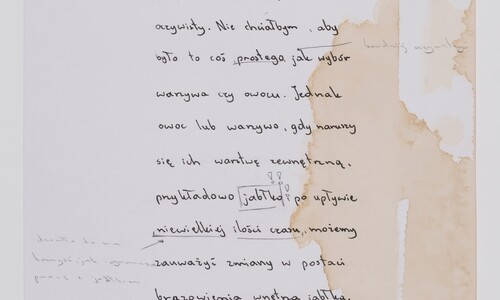 oczywisty. Nie chciałbym, aby
było to coś prostego jak wybór
warzywa czy owocu. Jednak
owoc lub warzywo, gdy naruszy
się ich warstwę zewnętrzną,
przykładowo jabłko po upływie
niewielkiej ilości czasu, możemy
zauważyć zmiany w postaci
brązowienia wnętrza jabłka.